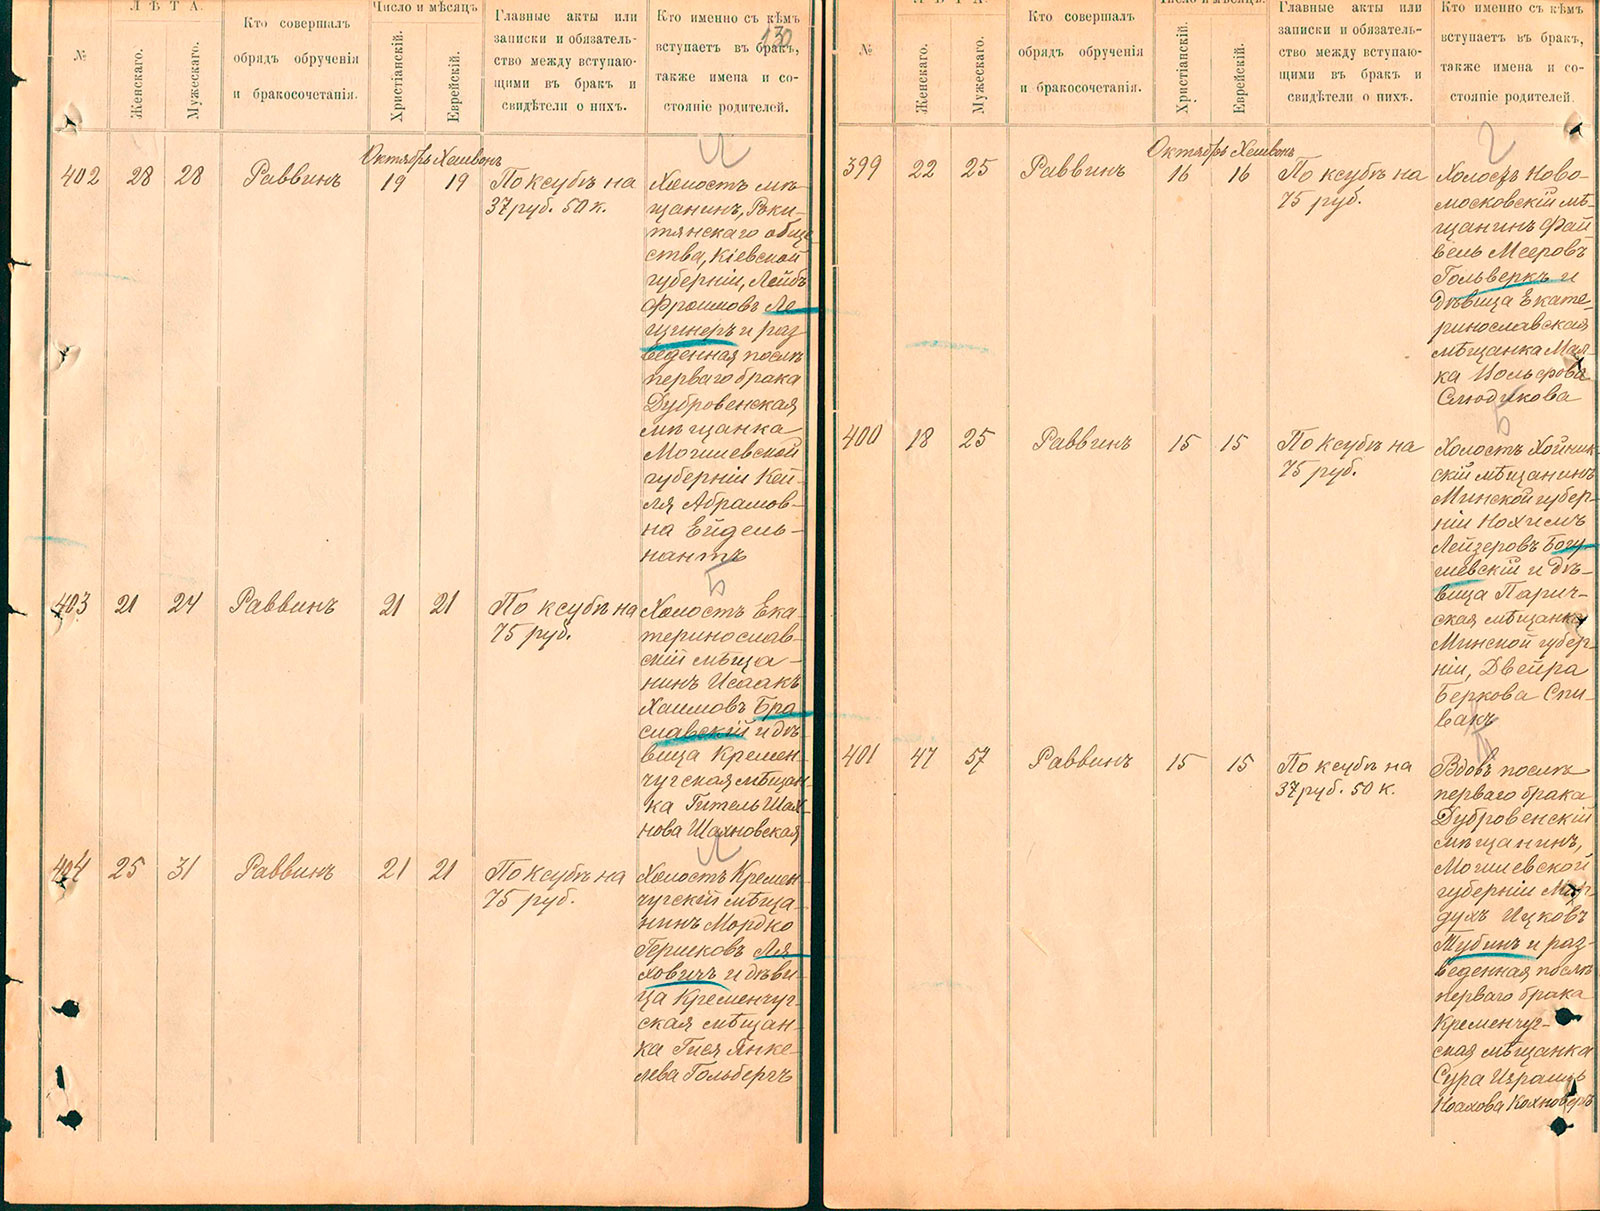 ЛѢТА.
Число и мѣсяцъ
№
Женскаго.
Мужескаго.
Кто совершалъ
обрядъ обрученія
и бракосочетанія.
Христіанскій.
Еврейскій.
Главные акты или
записки и обязатель-
ство между вступаю-
щими въ бракъ и
свидѣтели о нихъ.
Кто именно съ кѣмъ
вступаетъ въ бракъ,
также имена и со-
стояніе родителей.
130
Октябрь Хешвонъ
402 28 28 Раввинъ 19 19
По ксубѣ на
37 руб. 50 к.
Холостъ мѣ-
щанинъ, Раки-
тянскаго обще
ства, Кіевской
губерніи, Лейбъ
Фроимовъ Ле
щинеръ и раз
веденная послѣ
перваго брака
Дубровенская
мѣщанка
Могилевской
губерніи Кей-
ля Абрамов-
на Ейдель-
нантъ
Б
403 21 24 Раввинъ 21 21
По ксубѣ на
75 руб.
Холостъ Ека
теринослав-
скій мѣща-
нинъ Исаакъ
Хаимовъ Бра
славскій и дѣ-
вица Кремен-
чугская мѣщан-
ка Гитель Шах-
нова Шахновская
Л
404 25 31 Раввинъ 21 21
По ксубѣ на
75 руб.
Холостъ Кремен-
чугскій мѣща-
нинъ Мордко
Гершковъ Ля
ховичъ и дѣви-
ца Кременчуг-
ская мѣщан-
ка Гися Янке-
лева Гольбергъ
ЛѢТА.
Число и мѣсяцъ.
№
Женскаго.
Мужескаго.
Кто совершалъ
обрядъ обрученія
и бракосочетанія.
Христіанскій.
Еврейскій.
Главные акты или
записки и обязатель-
ство между вступаю-
щими въ бракъ и
свидѣтели о нихъ.
Кто именно съ кѣмъ
вступаетъ въ бракъ,
также имена и со-
стояніе родителей.
Г
Октябрь Хешвонъ
399 22 25 Раввинъ 16 16
По ксубѣ на
75 руб.
Холостъ Ново-
московскій мѣ-
щанинъ Фай
вель Мееровъ
Гольверкъ и
дѣвица Екате-
ринославская
мѣщанка Мал-
ка
Слюдикова
Б
400 18 25 Раввинъ 15 15
По ксубѣ на
75 руб.
Холостъ Хойник-
скій мѣщанинъ
Минской губер-
ніи Нохимъ
Лейзеровъ Богу
шевскій и дѣ-
вица Парич-
ская мѣщанка
Минской губер-
ніи, Двейра
Беркова Спи-
вакъ
401 47 57 Раввинъ 15 15
По ксубѣ на
37 руб. 50 к.
Вдовъ послѣ
перваго брака
Дубровенскій
мѣщанинъ,
Могилевской
губерніи Мор-
духъ Ицковъ
Тубинъ и раз-
веденная послѣ
перваго брака
Кременчуг-
ская мѣщанка
Сура Израиль